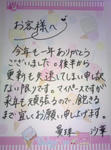 お客様へ
今年も一年ありがとう
ございました。後半から
更新も失速してしまい申し訳
ない限りです。マイペースですが
来年も頑張るので、飽きる
まで宜しくお願い申し上げます。